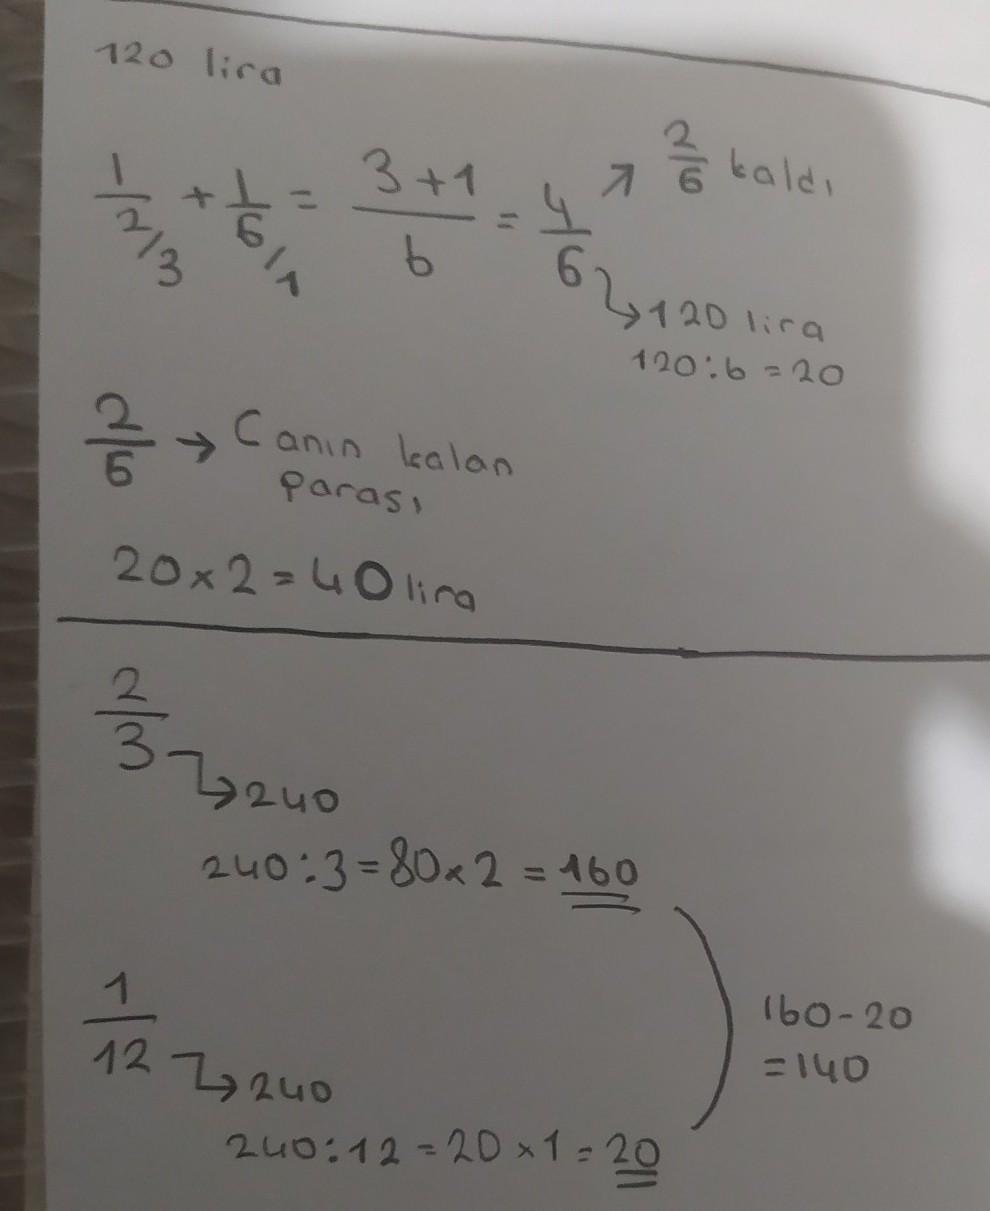 120 lira
1/2 /3 + 1/6 /1 = 3+1/6 = 4/6 ↗ 2/6 kaldı
↳ 120 lira
120:6 = 20
2/6 → Canın kalan
parası
20 x 2 = 40 lira
2/3 ↳ 240
240:3 = 80 x 2 = 160
1/12 ↳ 240
240:12 = 20 x 1 = 20
160 - 20
= 140